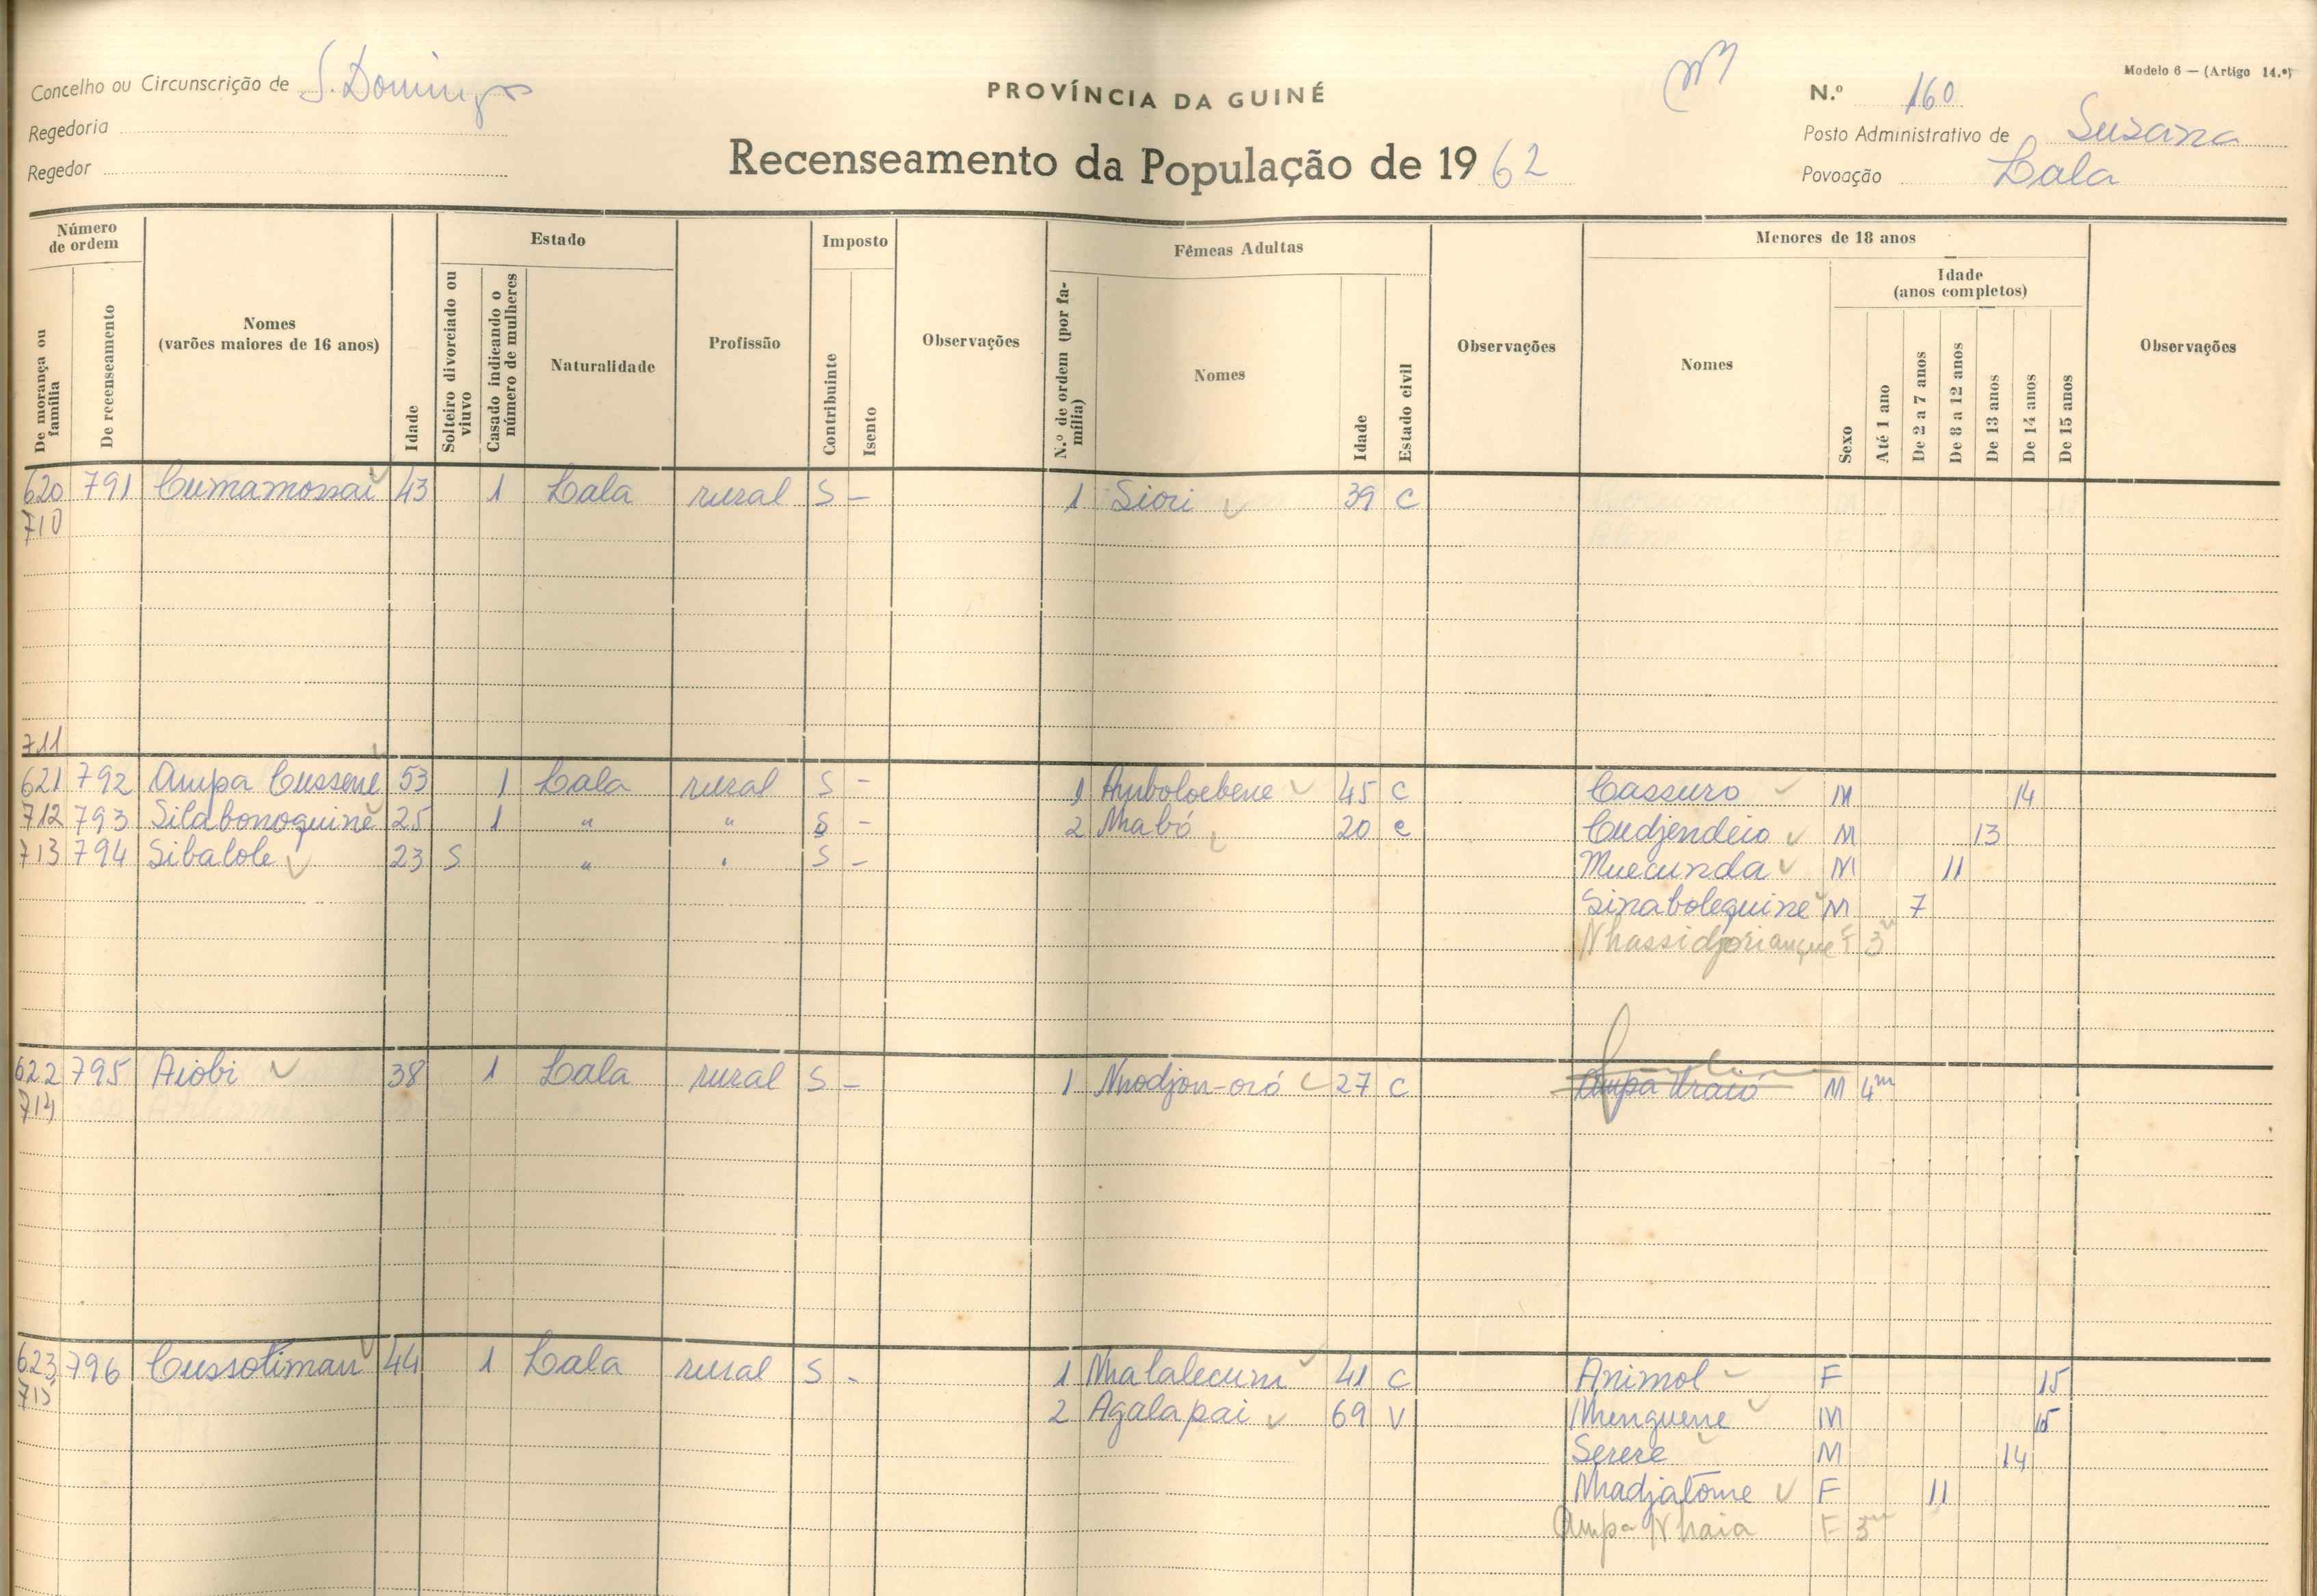 Modelo 6 — (Artigo 14.º)
Concelho ou Circunscrição de S. Domingos
PROVÍNCIA DA GUINÉ
N.º 160
Regedoria
Posto Administrativo de Suzana
Regedor
Recenseamento da População de 1962
Povoação Lala
Número de ordem
De morança ou família
De recenseamento
Nomes (varões maiores de 16 anos)
Idade
Estado
Solteiro divorciado ou viuvo
Casado indicando o número de mulheres
Naturalidade
Profissão
Imposto
Contribuinte
Isento
Observações
Fêmeas Adultas
N.º de ordem (por família)
Nomes
Idade
Estado civil
Observações
Menores de 18 anos
Nomes
Sexo
Idade (anos completos)
Até 1 ano
De 2 a 7 anos
De 8 a 12 anos
De 13 anos
De 14 anos
De 15 anos
Observações
620 791 Cumamossai 43 1 Lala rural S – 1 Siori 39 C
710
711
621 792 Ampa Cussene 53 1 Lala rural S – 1 Amboloebene 45 C Cassuro M 14
712 793 Silabonoquine 25 1 " " S – 2 Nhabó 20 c Cudjendeio M 13
713 794 Sibalole 23 S " " S – Muecunda M 11
Sinabolequine M 7
Nhassidjorianque F 3m
622 795 Aiobi 38 1 Lala rural S – 1 Nhodjon-oró 27 C Ampa Uraió M 4m
714
623 796 Cussotiman 44 1 Lala rural S - 1 Nhalalecum 41 C Animol F 15
715 2 Agalapai 69 V Menguene M 15
Serere M 14
Nhadjatome F 11
Ampa Nhaia F 3m